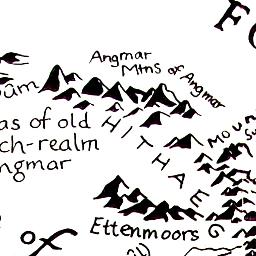 Angmar
Mtns of Angmar
as of old
ch-realm
ngmar
HITHAEG
Moun
Ettenmoors
of